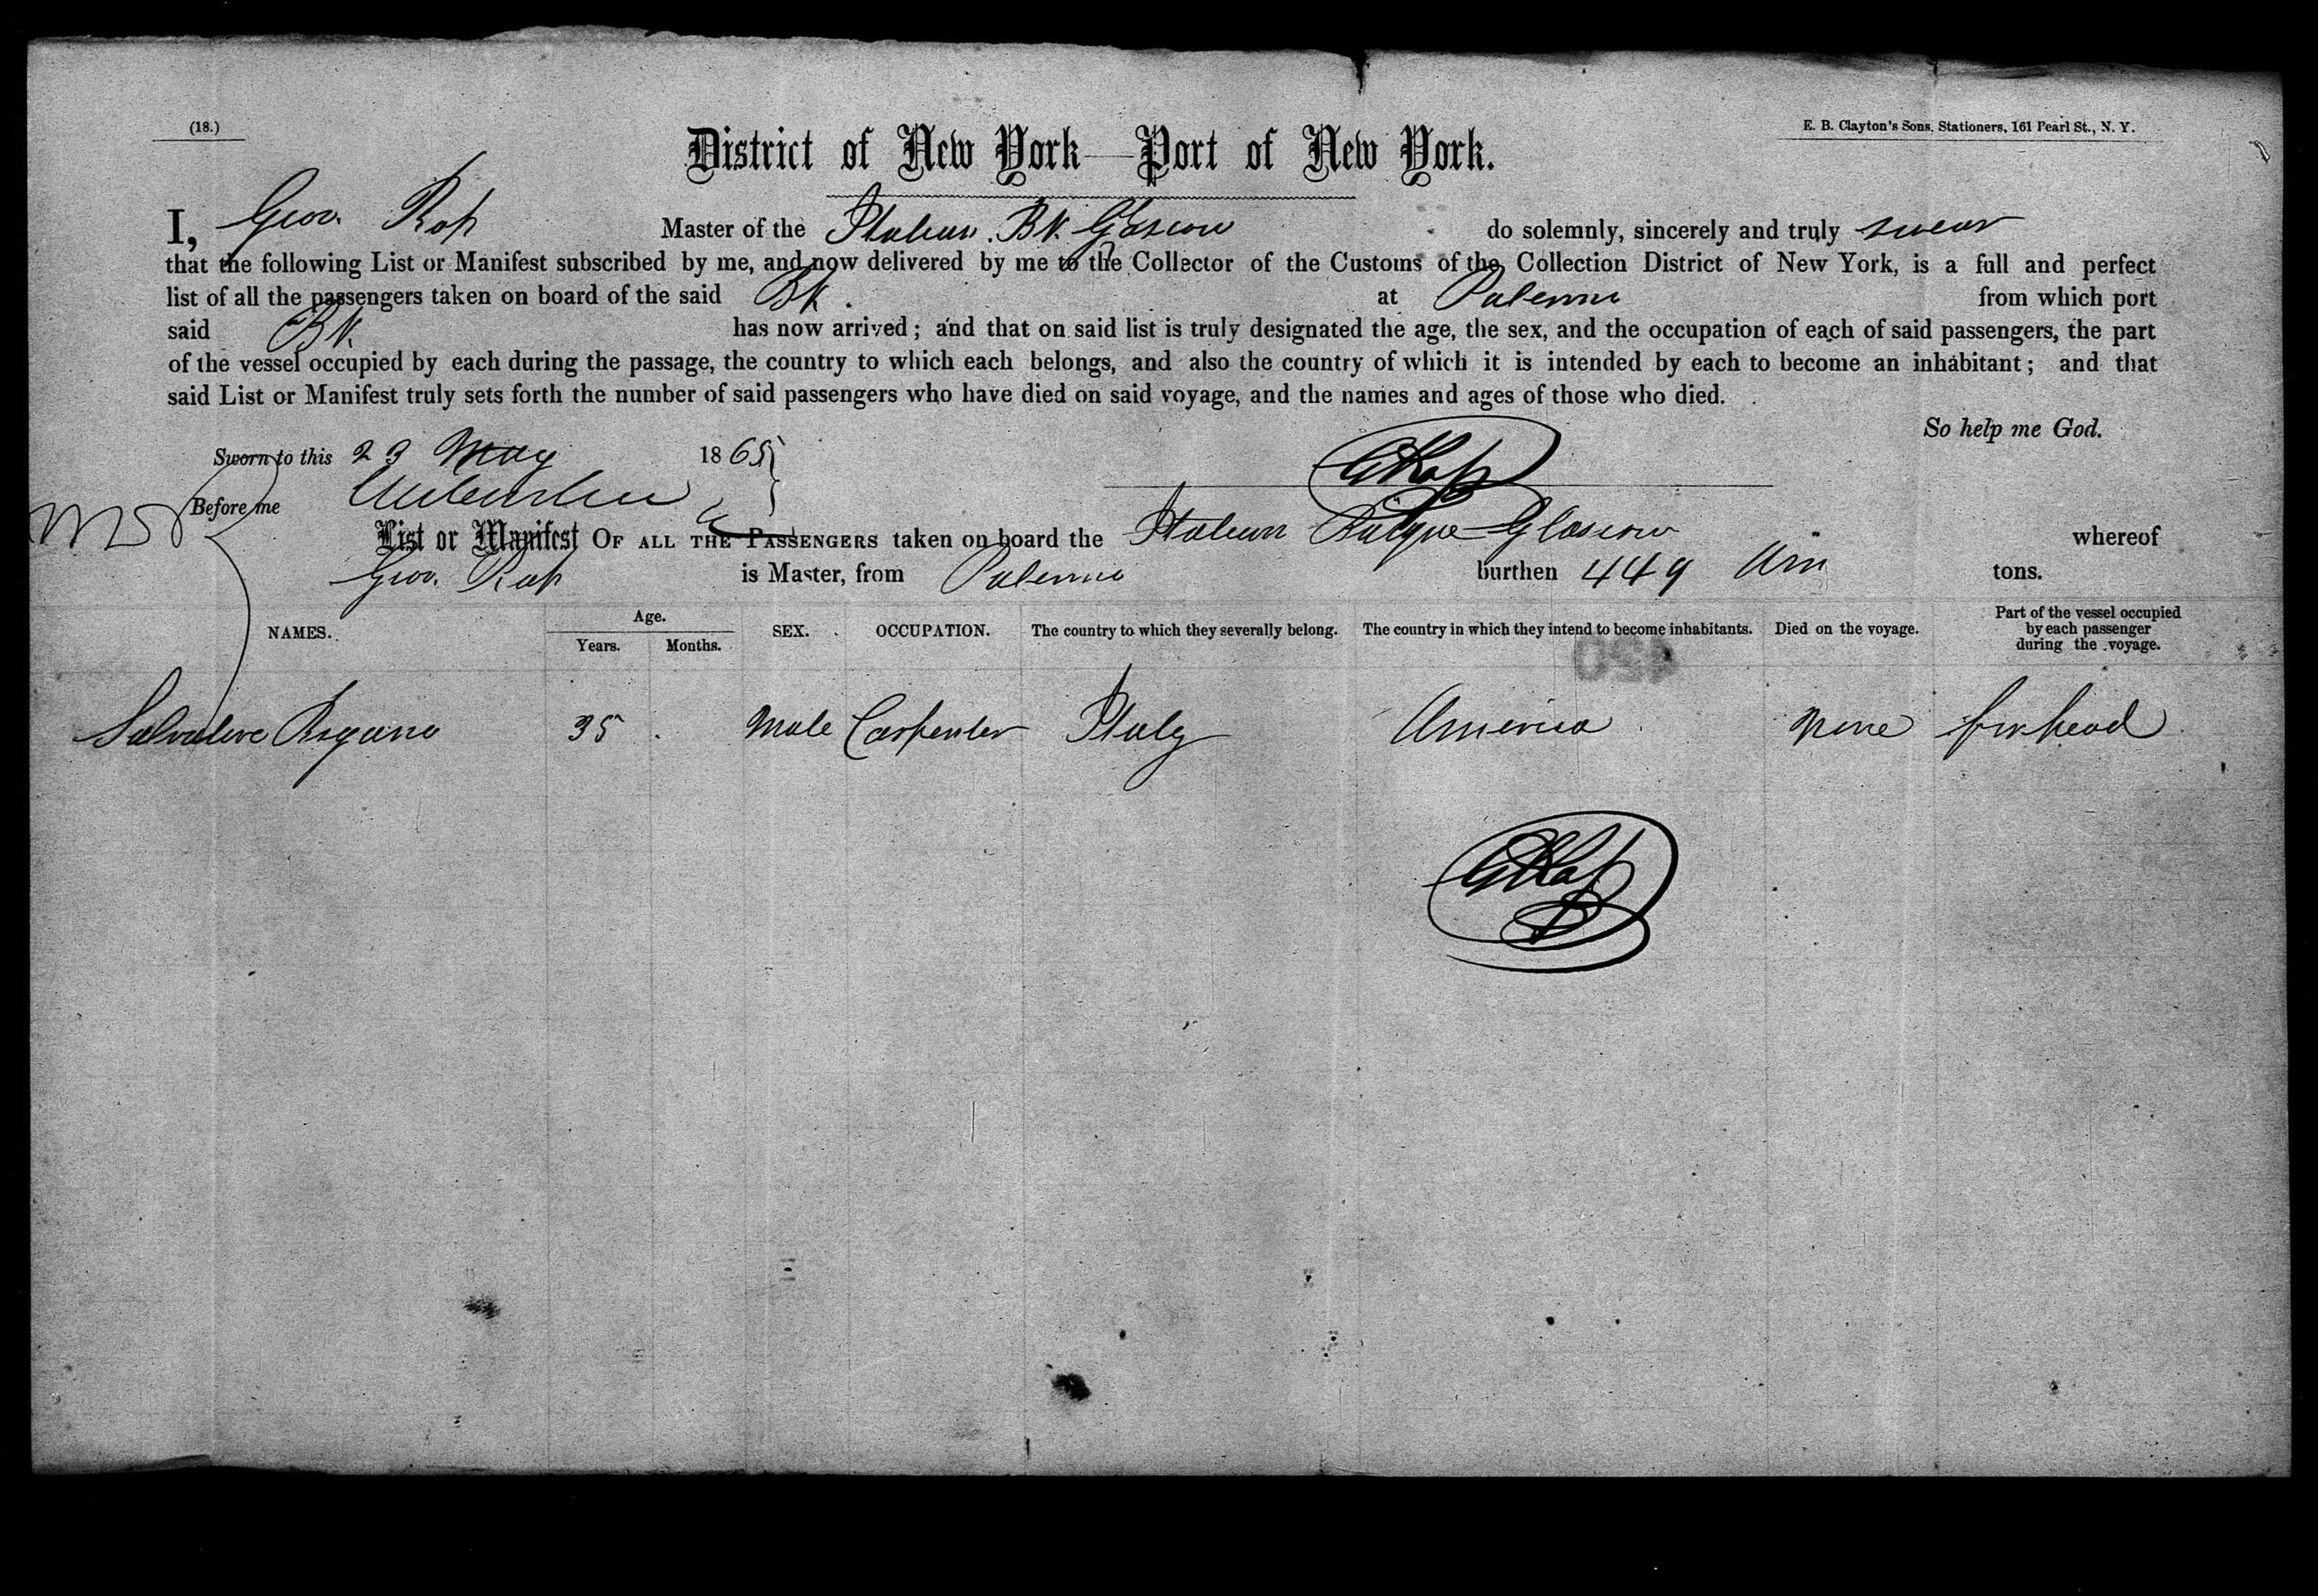 (18.)
E. B. Clayton's Sons, Stationers, 161 Pearl St., N. Y.
District of New York—Port of New York.
I, Giov. Rap Master of the Italian Bk. Glascow do solemnly, sincerely and truly swear
that the following List or Manifest subscribed by me, and now delivered by me to the Collector of the Customs of the Collection District of New York, is a full and perfect
list of all the passengers taken on board of the said Bk. at Palermo from which port
said Bk. has now arrived; and that on said list is truly designated the age, the sex, and the occupation of each of said passengers, the part
of the vessel occupied by each during the passage, the country to which each belongs, and also the country of which it is intended by each to become an inhabitant; and that
said List or Manifest truly sets forth the number of said passengers who have died on said voyage, and the names and ages of those who died.
So help me God.
Sworn to this 23 May 1865
GRap
Before me
List or Manifest OF ALL THE PASSENGERS taken on board the Italian Barque Glascow whereof
Giov. Rap is Master, from Palermo burthen 449 tons.
NAMES. Age. Years. Months. SEX. OCCUPATION. The country to which they severally belong. The country in which they intend to become inhabitants. Died on the voyage. Part of the vessel occupied by each passenger during the voyage.
Salvatore 35 Male Carpenter Italy America None
GRap